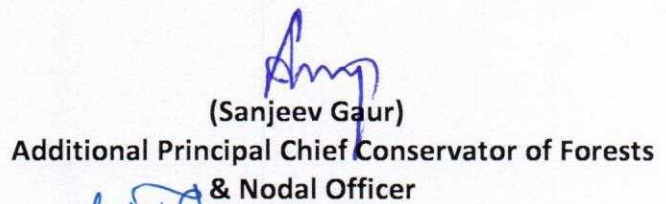 (Sanjeev Gaur)
Additional Principal Chief Conservator of Forests
& Nodal Officer